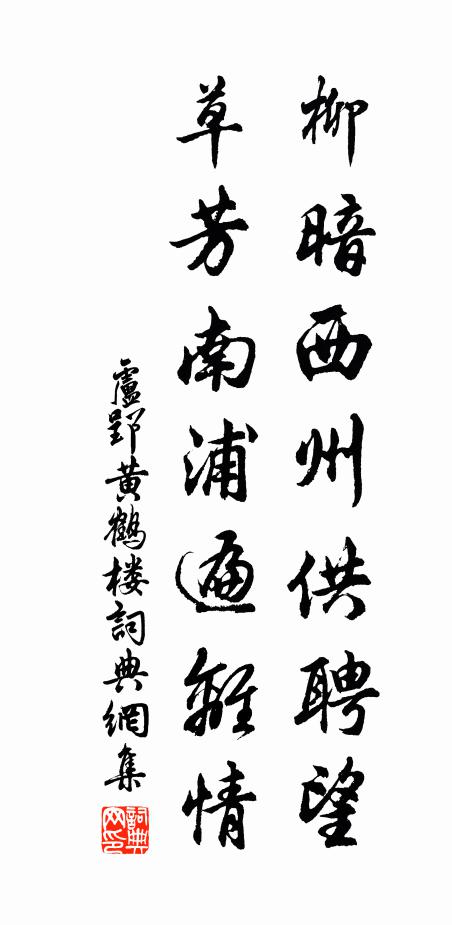 柳暗西州供聘望
草芳南浦遍離情
盧郢黄鶴楼詞典網集
詞典
网印